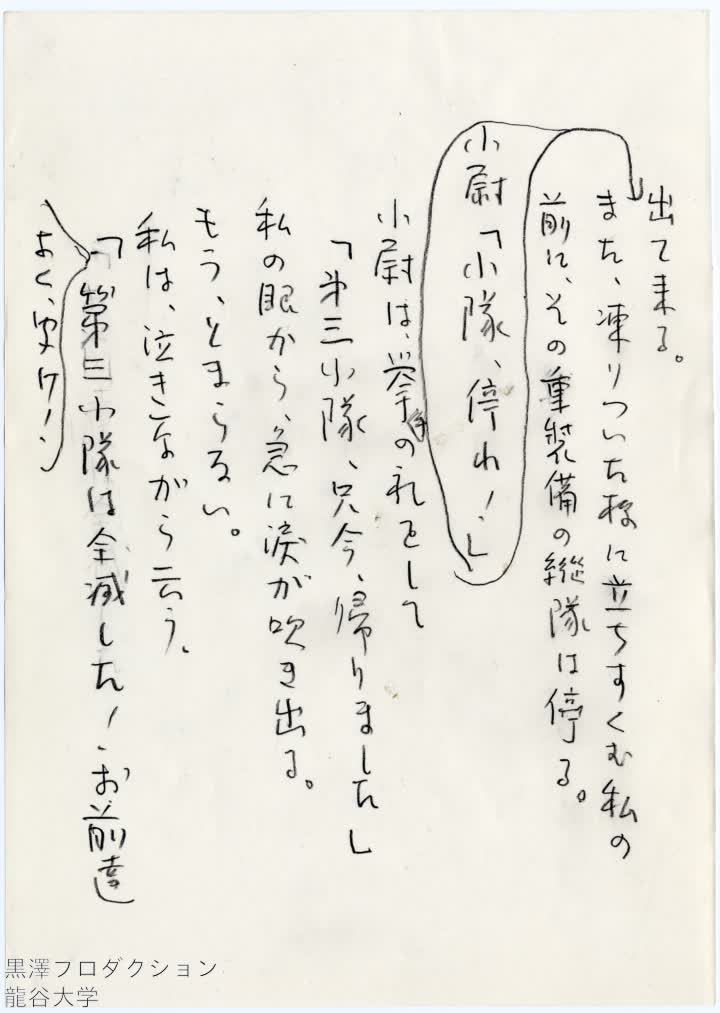 出て来る。
また、凍りついた様に立ちすくむ私の
前に、その重装備の縦隊は停る。
小尉「小隊、停れ!」
小尉は、挙手の礼をして
「第三小隊、只今、帰りました」
私の眼から、急に涙が吹き出る。
もう、とまらない。
私は、泣きながら云う。
「第三小隊は全滅した!お前達
よく、聞け!
黒澤プロダクション
龍谷大学